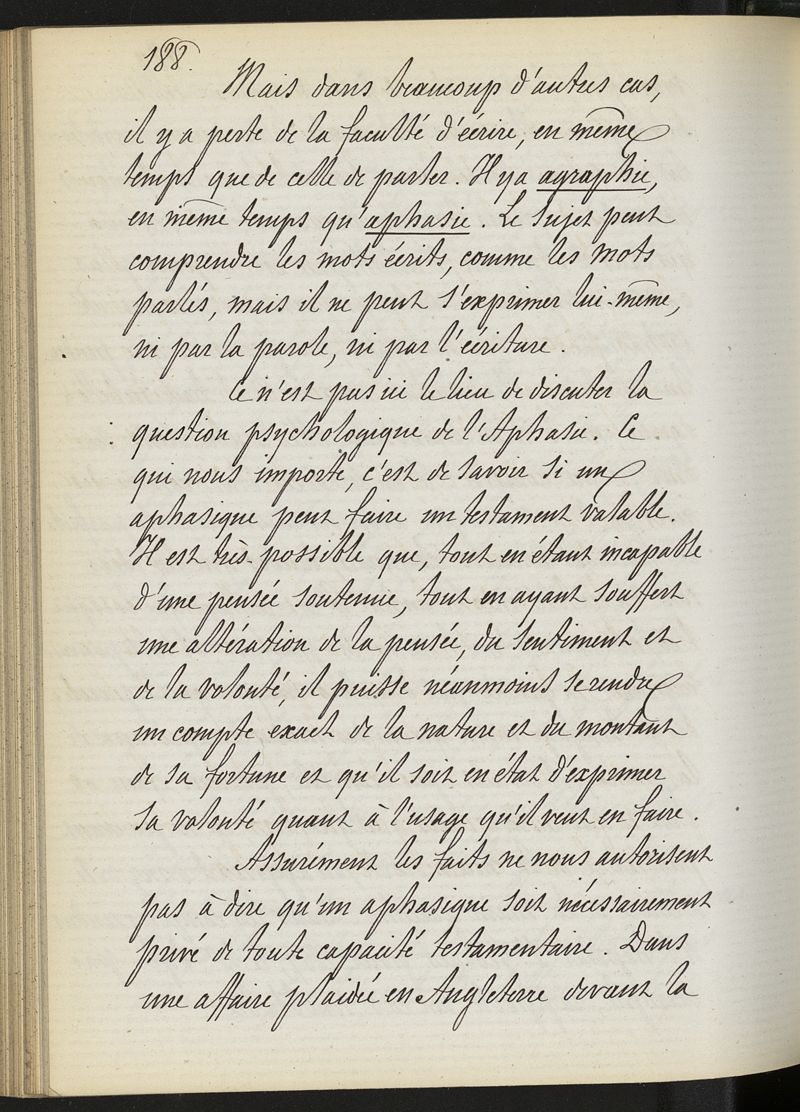 188.
Mais dans beaucoup d'autres cas,
il y a perte de la faculté d'écrire, en même
temps que de celle de parler. Il y a agraphie,
en même temps qu'aphasie. Le sujet peut
comprendre les mots écrits, comme les mots
parlés, mais il ne peut s'exprimer lui-même,
ni par la parole, ni par l'écriture.
Ce n'est pas ici le lieu de discuter la
question psychologique de l'Aphasie. Ce
qui nous importe, c'est de savoir si un
aphasique peut faire un testament valable.
Il est très-possible que, tout en étant incapable
d'une pensée soutenue, tout en ayant souffert
une altération de la pensée, du sentiment et
de la volonté, il puisse néanmoins se rendre
un compte exact de la nature et du montant
de sa fortune et qu'il soit en état d'exprimer
sa volonté quant à l'usage qu'il veut en faire.
Assurément les faits ne nous autorisent
pas à dire qu'un aphasique soit nécessairement
privé de toute capacité testamentaire. Dans
une affaire plaidée en Angleterre devant la